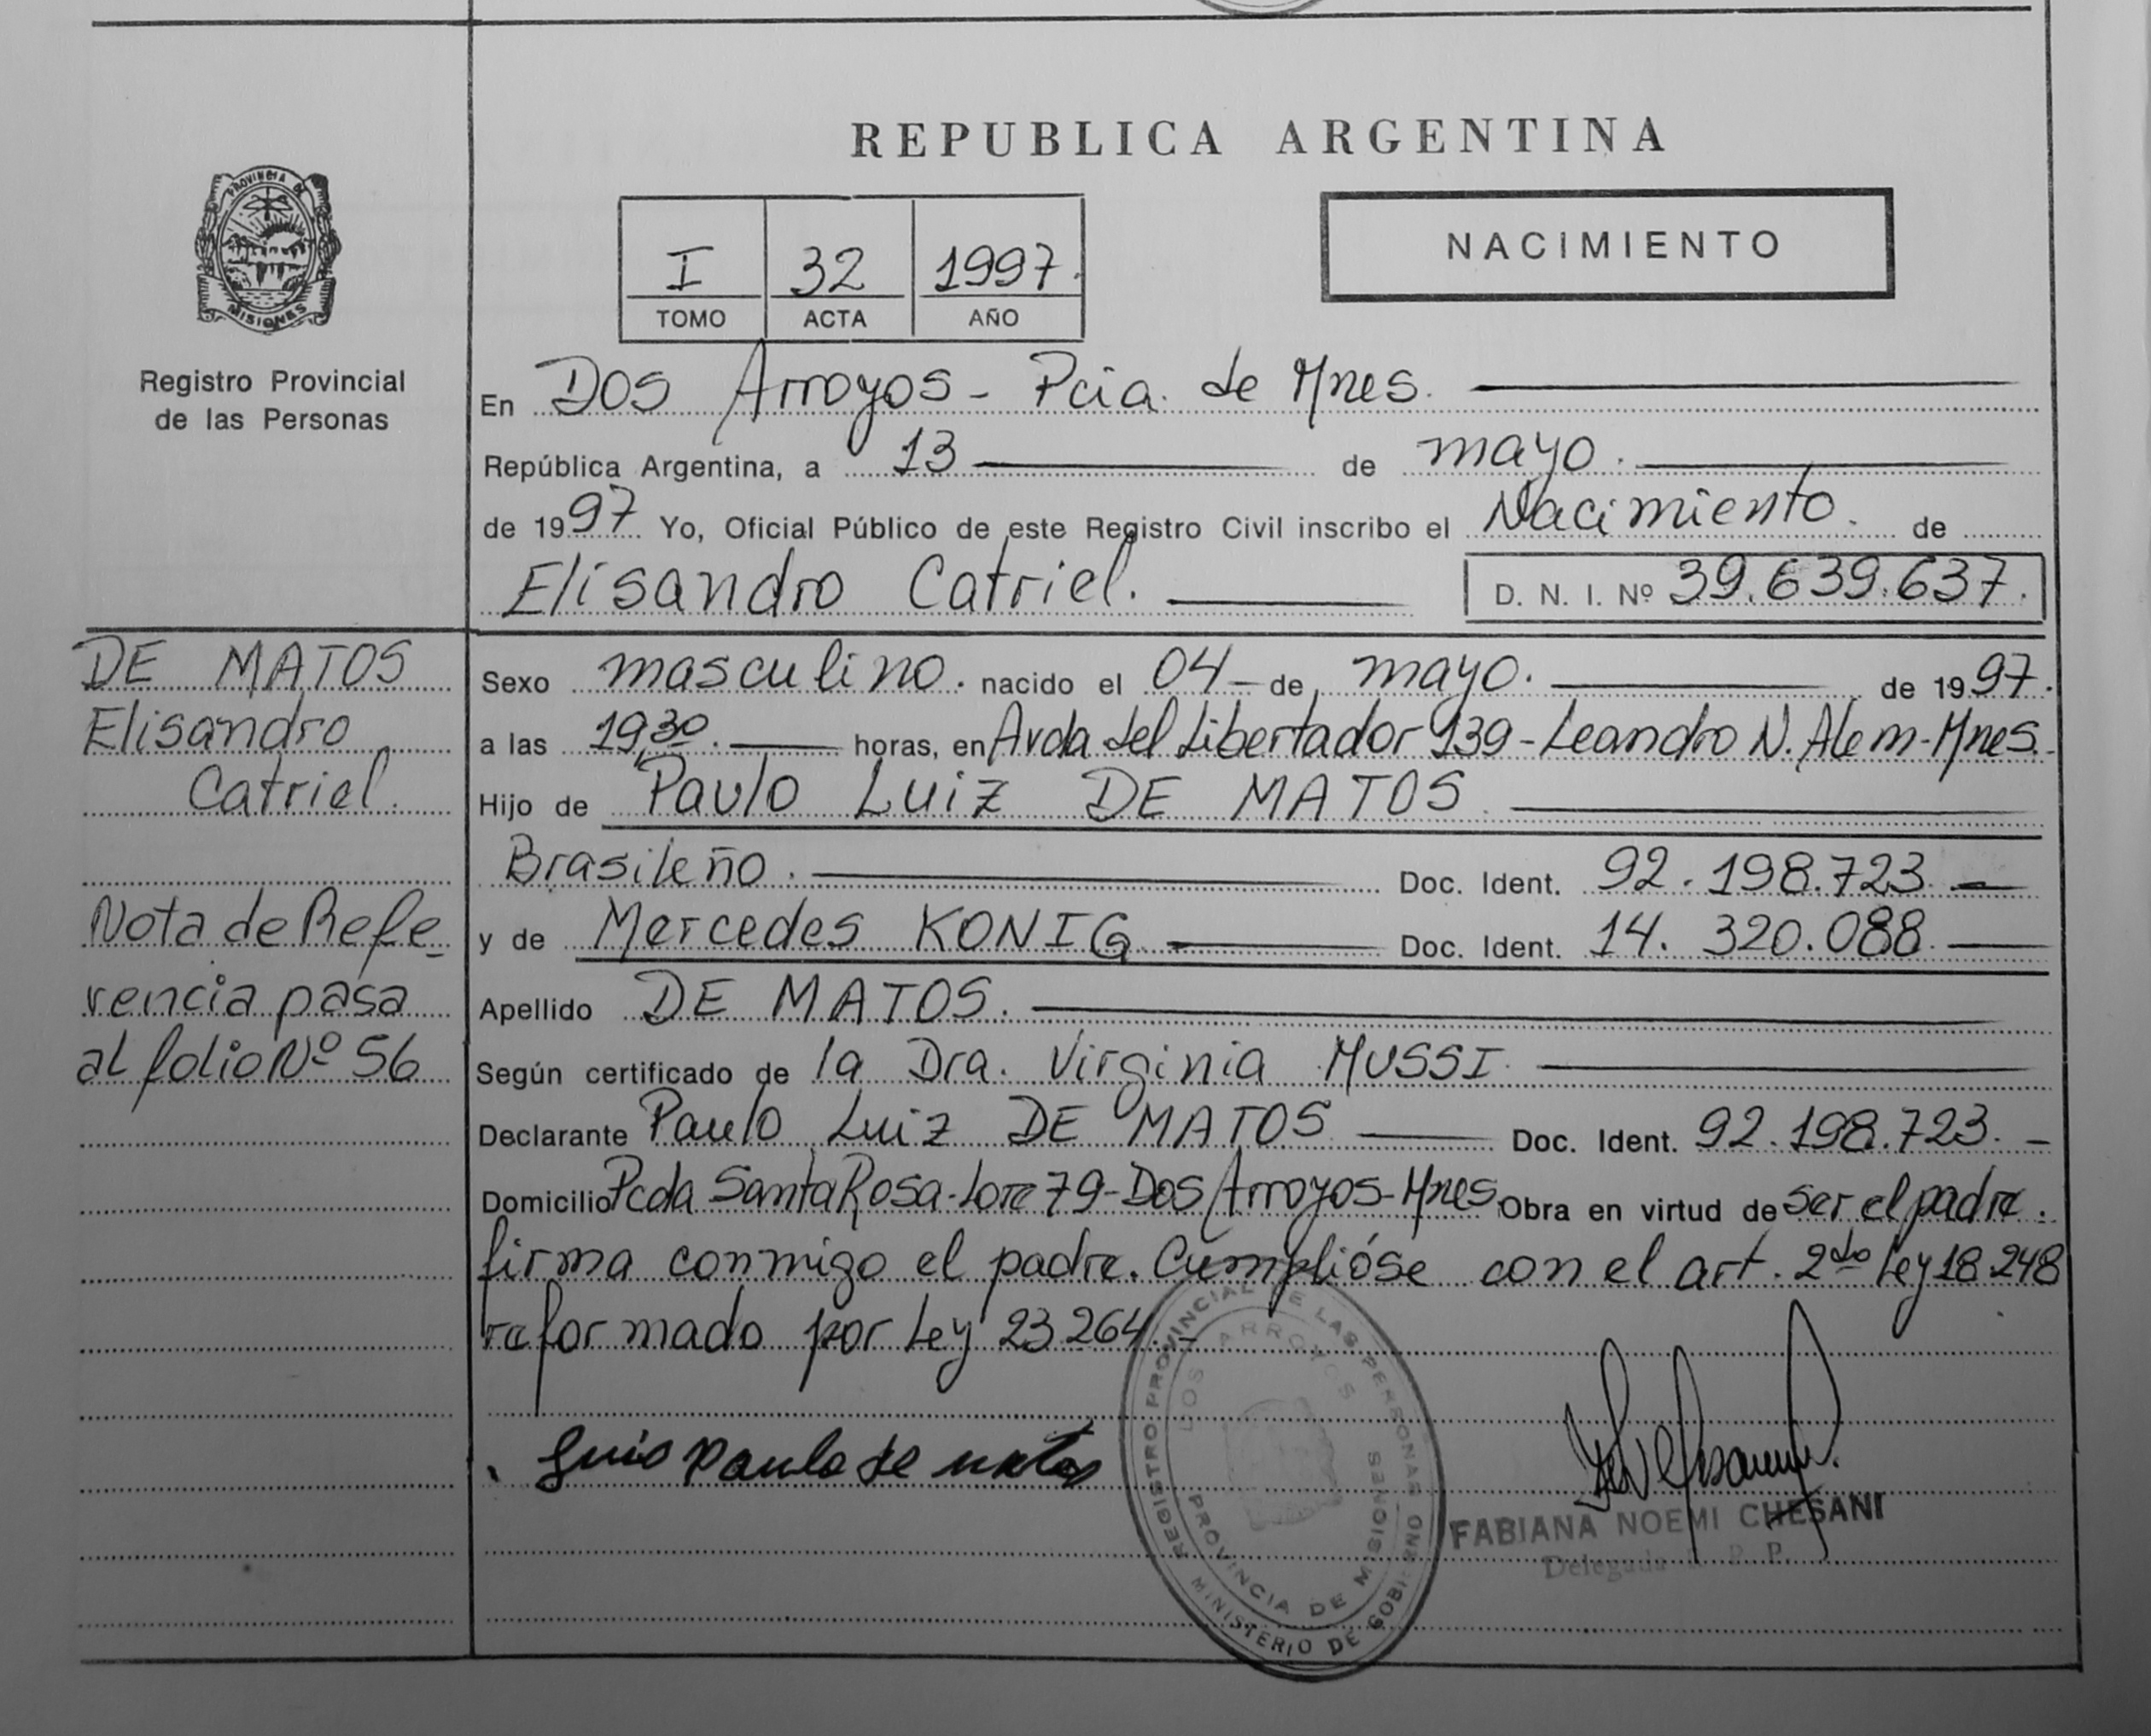 REPUBLICA ARGENTINA
PROVINCIA DE
MISIONES
Registro Provincial
de las Personas
I 32 1997.
TOMO ACTA AÑO
NACIMIENTO
En Dos Arroyos - Pcia. de Mnes.
República Argentina, a 13 de mayo.
de 1997 Yo, Oficial Público de este Registro Civil inscribo el Nacimiento. de
Elisandro Catriel. D. N. I. Nº 39.639.637.
DE MATOS
Elisandro
Catriel.
Nota de Refe-
rencia pasa
al folio Nº 56
Sexo masculino. nacido el 04 - de mayo. de 1997.
a las 19,30. horas, en Avda del Libertador 139 - Leandro N. Alem - Mnes.
Hijo de Paulo Luiz DE MATOS
Brasileño. Doc. Ident. 92.198.723
y de Mercedes KONIG Doc. Ident. 14.320.088
Apellido DE MATOS.
Según certificado de la Dra. Virginia MUSSI.
Declarante Paulo Luiz DE MATOS Doc. Ident. 92.198.723. -
Domicilio Pcda Santa Rosa - Lote 79 - Dos Arroyos - Mnes. Obra en virtud de ser el padre.
firma conmigo el padre. Cumplióse con el art. 2do Ley 18248
reformado por Ley 23264. -
Luis Paulo de matos
REGISTRO PROVINCIAL DE LAS PERSONAS
MINISTERIO DE GOBIERNO
DOS ARROYOS
PROVINCIA DE MISIONES
FABIANA NOEMI CHESANI
Delegada R. P. P.